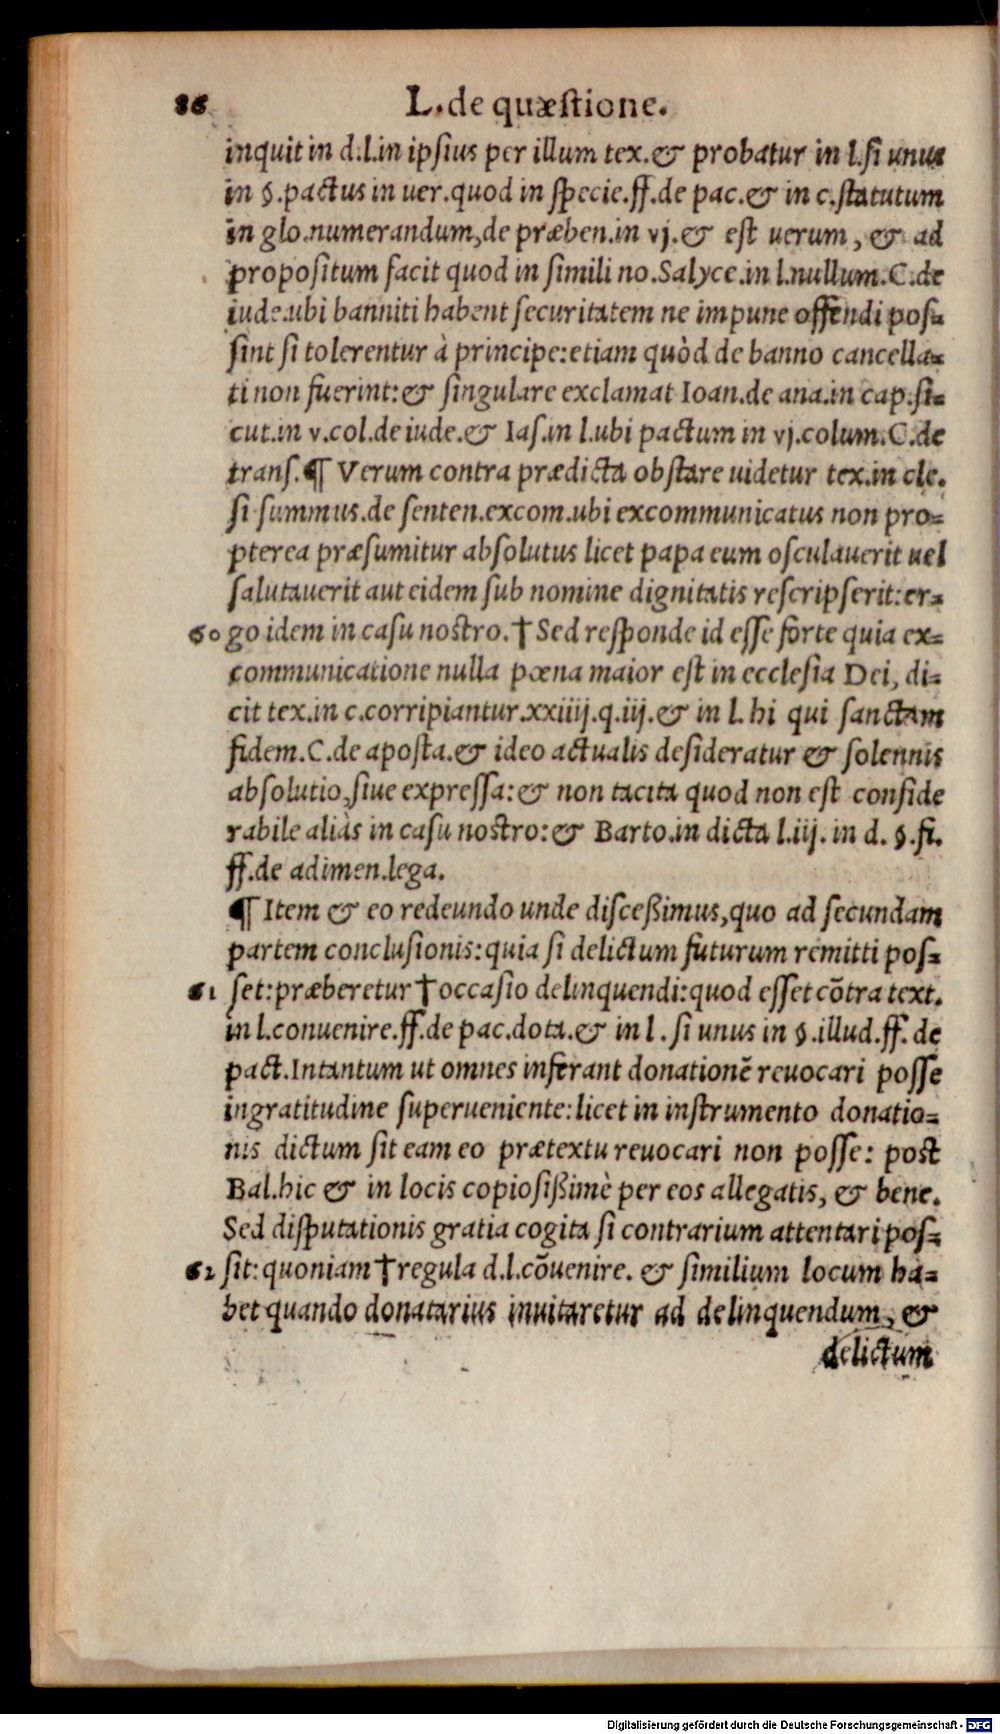 86 L. de quæſtione.
inquit in d.l.in ipſius per illum tex.& probatur in l.ſi unus
in §.pactus in uer.quod in ſpecie.ff.de pac.& in c.ſtatutum
in glo.numerandum,de præben.in vj.& eſt uerum, & ad
propoſitum facit quod in ſimili no.Salyce.in l.nullum.C.de
iude.ubi banniti habent ſecuritatem ne impune offendi poſ-
ſint ſi tolerentur à principe:etiam quòd de banno cancella-
ti non fuerint:& ſingulare exclamat Ioan.de ana.in cap.ſi-
cut.in v.col.de iude.& Iaſ.in l.ubi pactum in vj.colum.C.de
tranſ.¶ Verum contra prædicta obſtare uidetur tex.in cle.
ſi ſummus.de ſenten.excom.ubi excommunicatus non pro-
pterea præſumitur abſolutus licet papa eum oſculauerit uel
ſalutauerit aut eidem ſub nomine dignitatis reſcripſerit:er-
60 go idem in caſu noſtro.† Sed reſponde id eſſe forte quia ex-
communicatione nulla pœna maior eſt in eccleſia Dei, di-
cit tex.in c.corripiantur.xxiiij.q.iij.& in l. hi qui ſanctam
fidem.C.de apoſta.& ideo actualis deſideratur & ſolennis
abſolutio,ſiue expreſſa:& non tacita quod non eſt conſide
rabile aliàs in caſu noſtro:& Barto.in dicta l.iij. in d. §.fi.
ff.de adimen.lega.
¶ Item & eo redeundo unde diſceßimus,quo ad ſecundam
partem concluſionis:quia ſi delictum futurum remitti poſ-
61 ſet:præberetur † occaſio delinquendi:quod eſſet cõtra text.
in l.conuenire.ff.de pac.dota.& in l. ſi unus in §.illud.ff. de
pact.Intantum ut omnes inferant donationẽ reuocari poſſe
ingratitudine ſuperueniente:licet in inſtrumento donatio-
nis dictum ſit eam eo prætextu reuocari non poſſe: poſt
Bal.hic & in locis copioſißimè per eos allegatis, & bene.
Sed diſputationis gratia cogita ſi contrarium attentari poſ-
62 ſit: quoniam † regula d.l.cõuenire. & ſimilium locum ha-
bet quando donatarius inuitaretur ad delinquendum, &
delictum
Digitalisierung gefördert durch die Deutsche Forschungsgemeinschaft - DFG